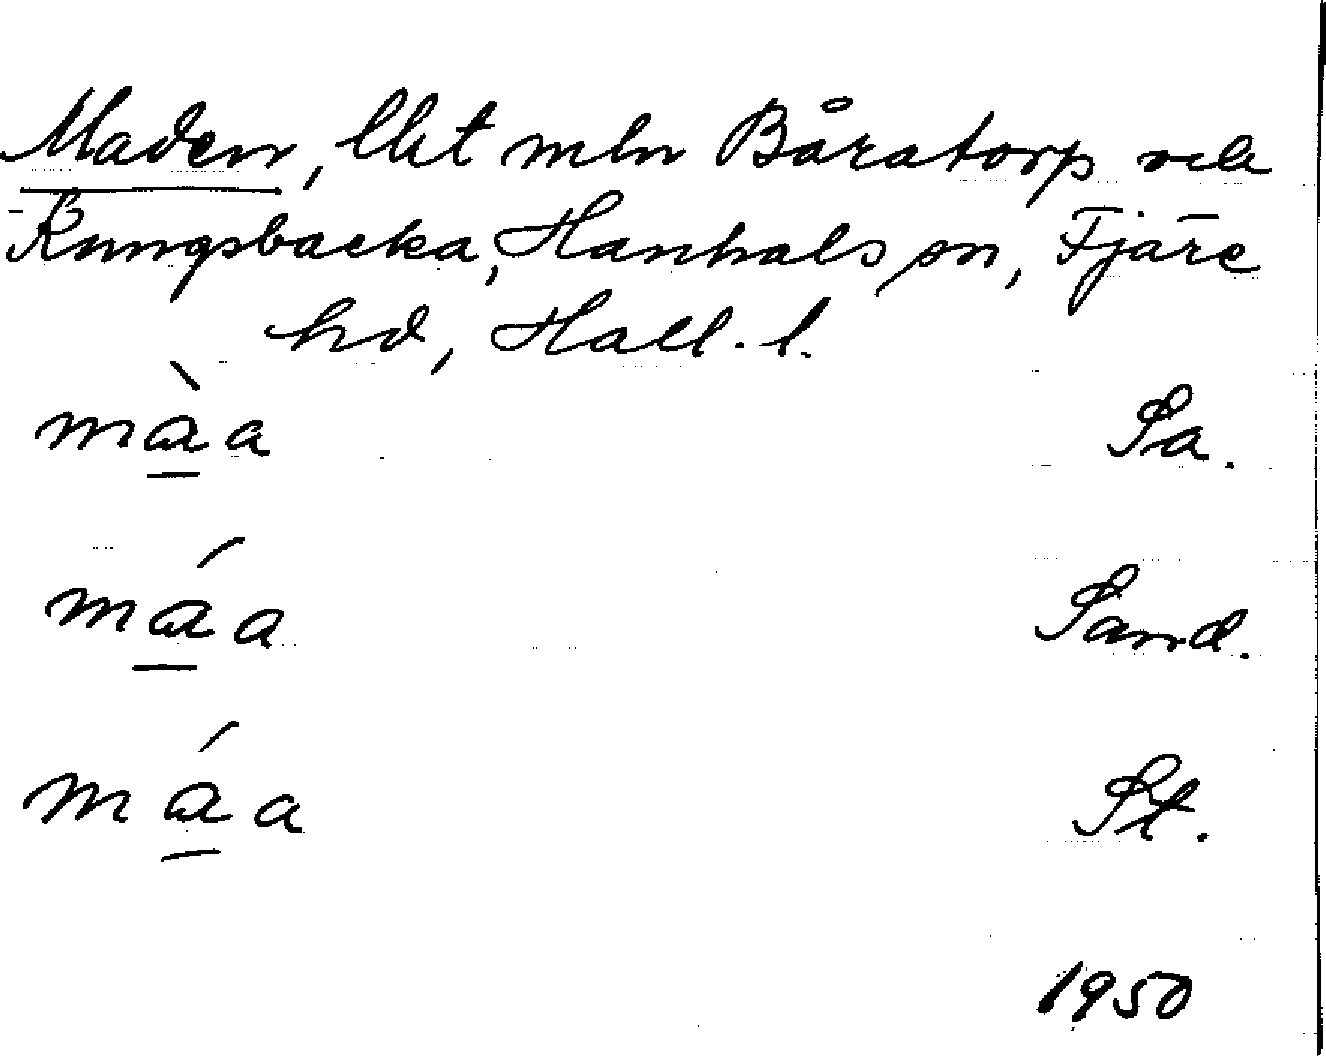 Maden, lht mln Båratorp och
Kungsbacka, Hanhals sn, Fjäre
hd, Hall. l.
màa Sa.
máa Sand.
máa St.
1950